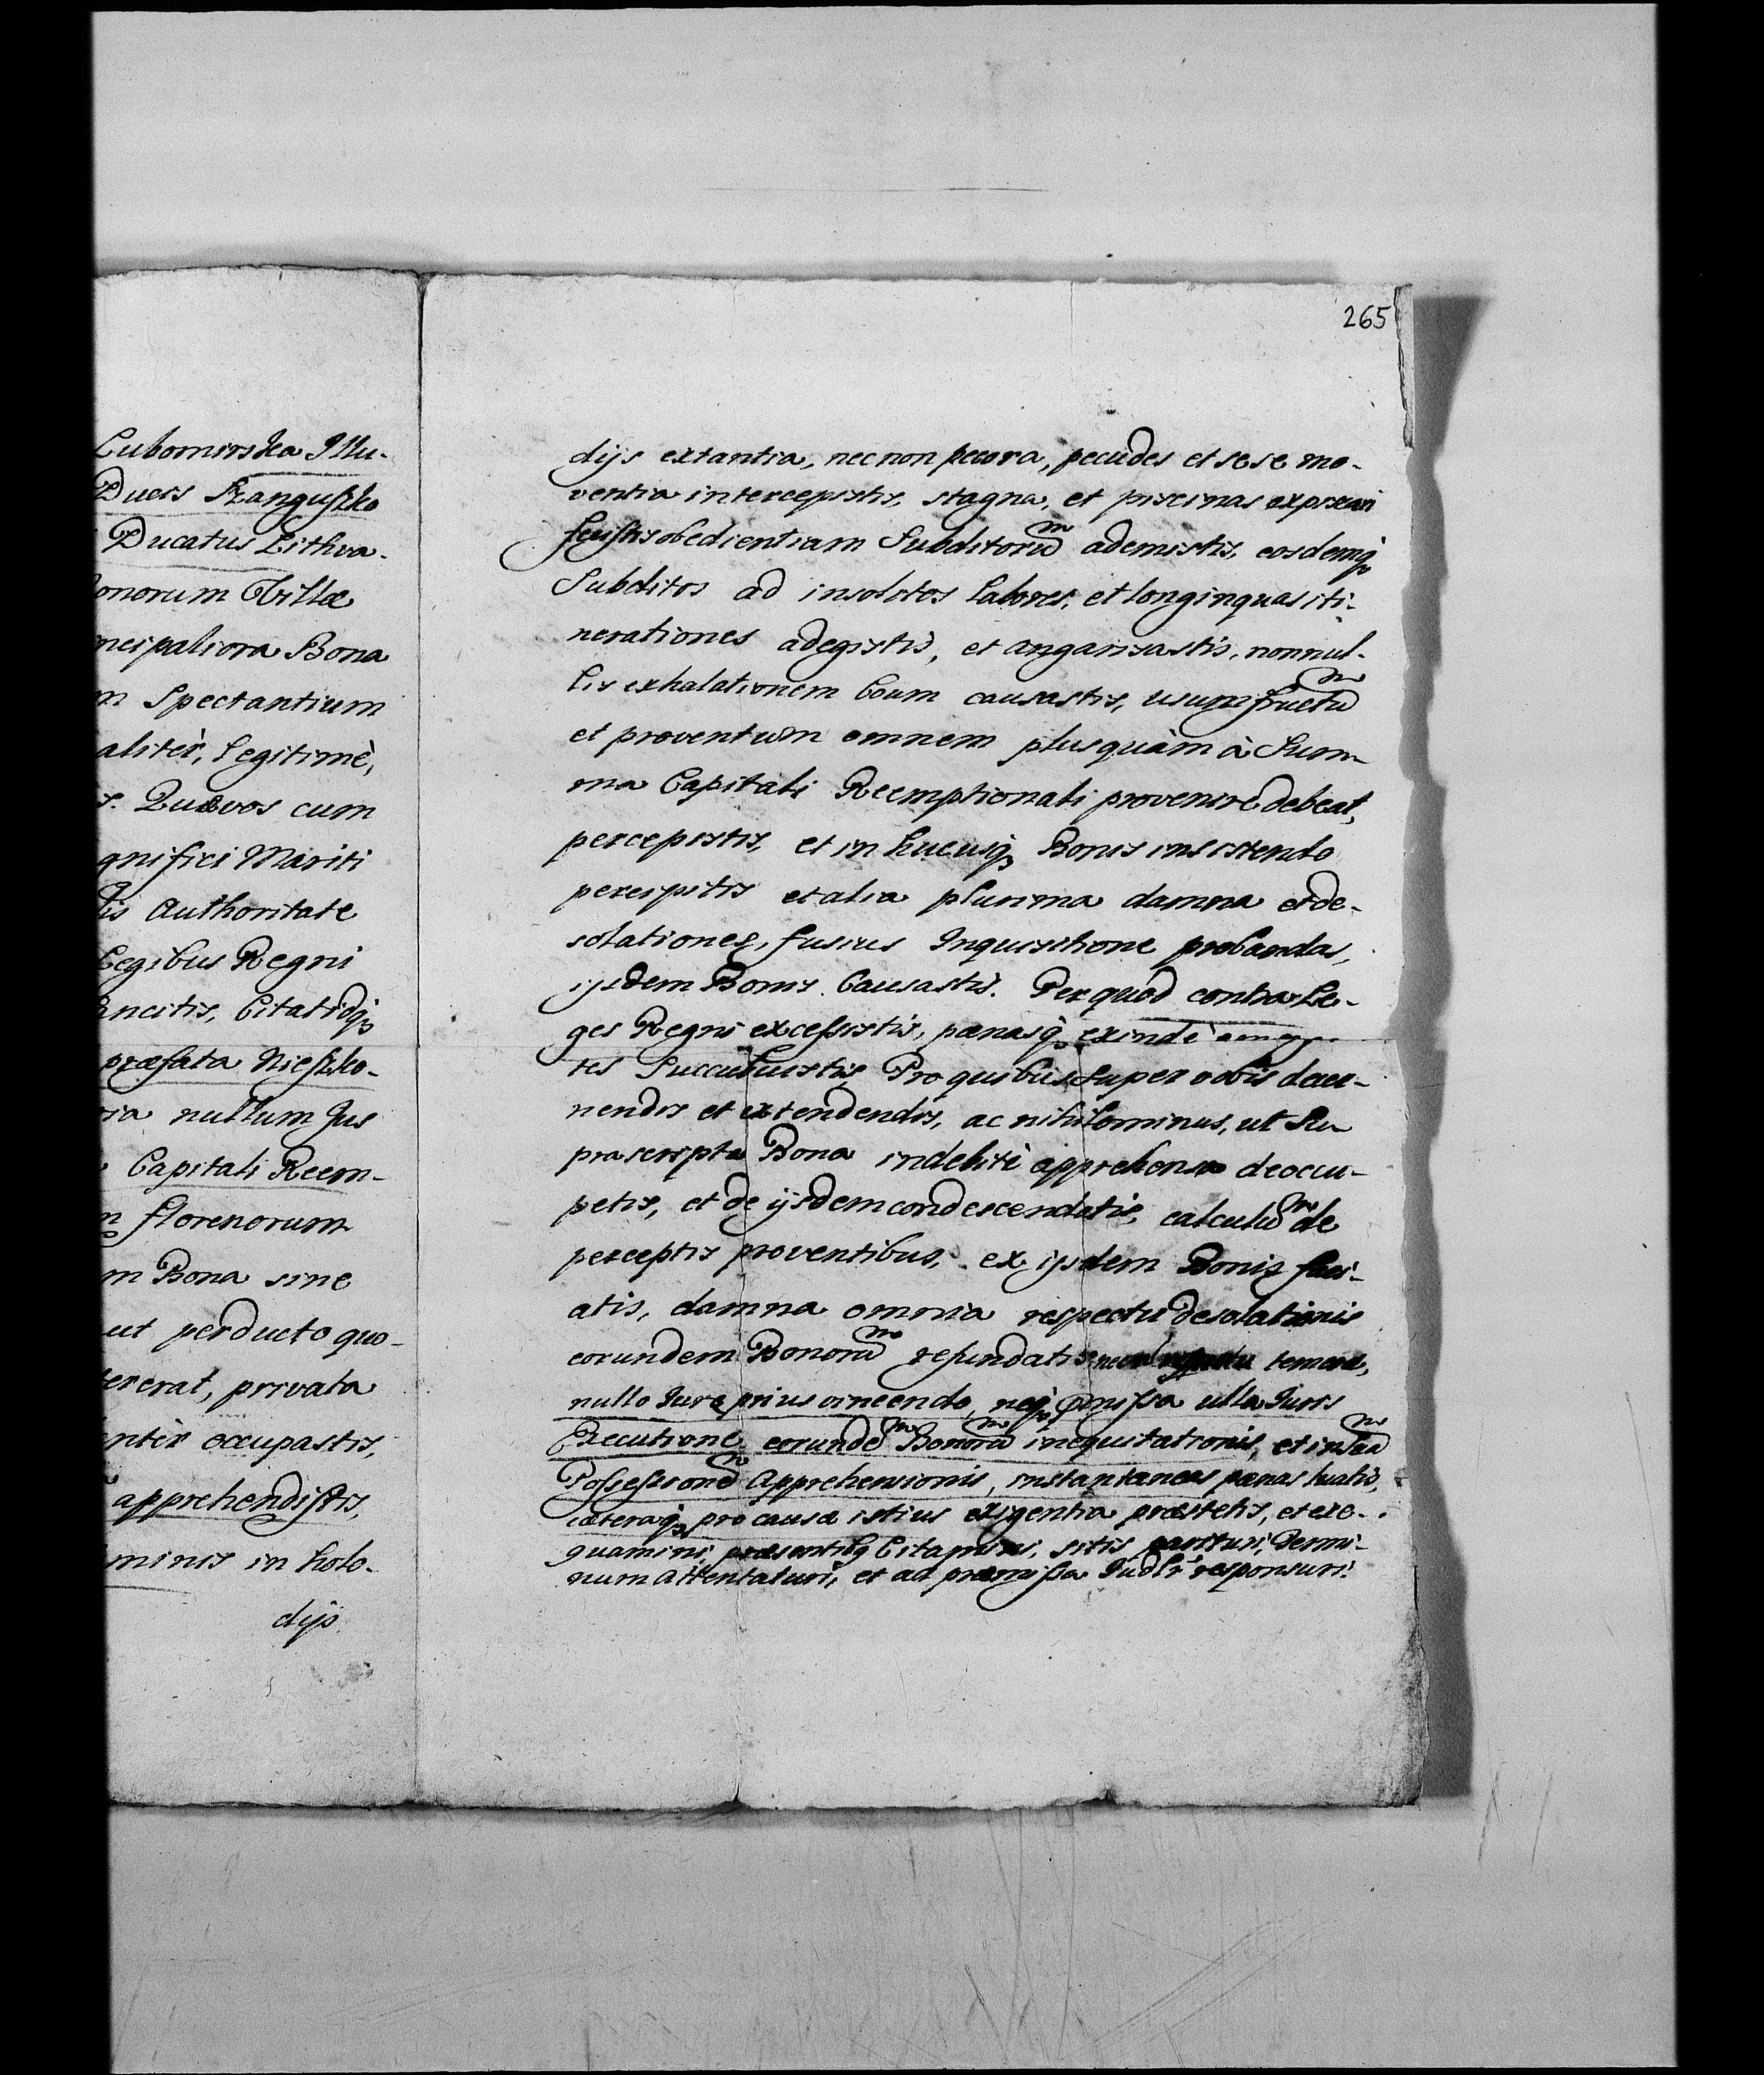 265
Lubomirska Illu-
Ducis Szanguszko
Ducatus Lithva-
onorum Villæ
ncipaliora Bona
m Spectantium
alitèr, Legitimè,
Quævos cum
gnifici Mariti
lis Authoritate
Legibus Regni
ancitis, Citatidq̃
præfata Nieszko-
ria nullum Jus
Capitali Reem-
florenorum
m Bona sine
ut perducto quo-
ererat, privata
entèr occupastis,
apprehendistis,
minis in holo-
dijs
dijs extantia, necnon pecora, pecudes et sese mo-
ventia intercepistis, stagna, et piscinas expiscari
fecistis obedientiam Subditorum ademistis, eosdemq̃
Subditos ad insolitos labores, et longinquas iti-
nerationes adegistis, et angarisastis, nonnul-
lis exhalationem boum causastis, usumfructum
et proventum omnem plusquàm à Sum-
ma Capitali Reemptionali provenire debeat,
percepistis, et in hucusq̃ Bonis insistendo
percipitis et alia plurima damna et de-
solationes, fusius Inquisitione probandas,
ijsdem Bonis Causastis. Per quod contra Le-
ges Regni excessistis, pænasq̃ exindè
tes Succubuistis, Pro quibus super vobis decer-
nendis et extendendis, ac nihilominus, ut Su-
prascripta Bona indebitè apprehensa deoccu-
petis, et de ijsdem condescendatis, calculum de
perceptis proventibus, ex ijsdem Bonis faci-
atis, damna omnia respectu desolationis
eorundem Bonorum refundatis temerè,
nullo Jure prius vincendo, neq̃ præmissa ulla Juris
Executione, eorundem Bonorum inequitationis, et in Suam
Possessionem Apprehensionis, instantaneas pænas luatis,
cæteraq̃ pro causæ istius exigentia præstetis, et exe-
quamini, præsentibq̃ Citamini, sitis parituri, Termi-
num attentaturi, et ad præmissa Judlr responsuri.